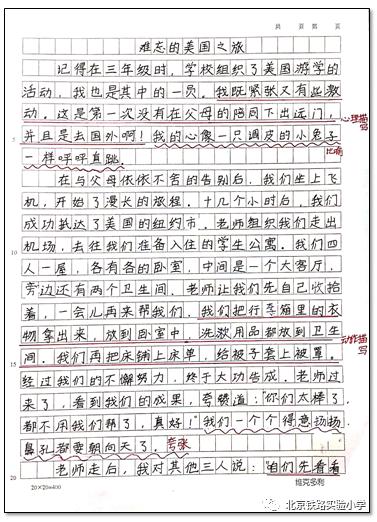 共 页 第 页
难忘的美国之旅
记得在三年级时，学校组织了美国游学的
活动，我也是其中的一员。我既紧张又有些激
动。这是第一次没有在父母的陪同下出远门，
心理描写
5
并且是去国外啊！我的心像一只调皮的小兔子
比喻
一样呯呯直跳。
在与父母依依不舍的告别后，我们坐上飞
机，开始了漫长的旅程。十几个小时后，我们
成功抵达了美国的纽约市。老师组织我们走出
10
机场，去往我们准备入住的学生公寓。我们四
人一屋，各有各的卧室，中间是一个大客厅，
旁边还有两个卫生间。老师让我们先自己收拾
着，一会儿再来帮我们。我们把行李箱里的衣
物拿出来，放到卧室中，洗漱用品都放到卫生
动作描写
15
间。我们再把床铺上床单，给被子套上被罩。
经过我们的不懈努力，终于大功告成。老师过
来了，看到我们的成果，夸赞道：“你们太棒了，
都不用我们帮了，真好！”我们一个个得意扬扬，
鼻孔都要朝向天了。夸张
20
老师走后，我对其他三人说：“咱们先看看
20×20=400
维克多利
北京铁路实验小学